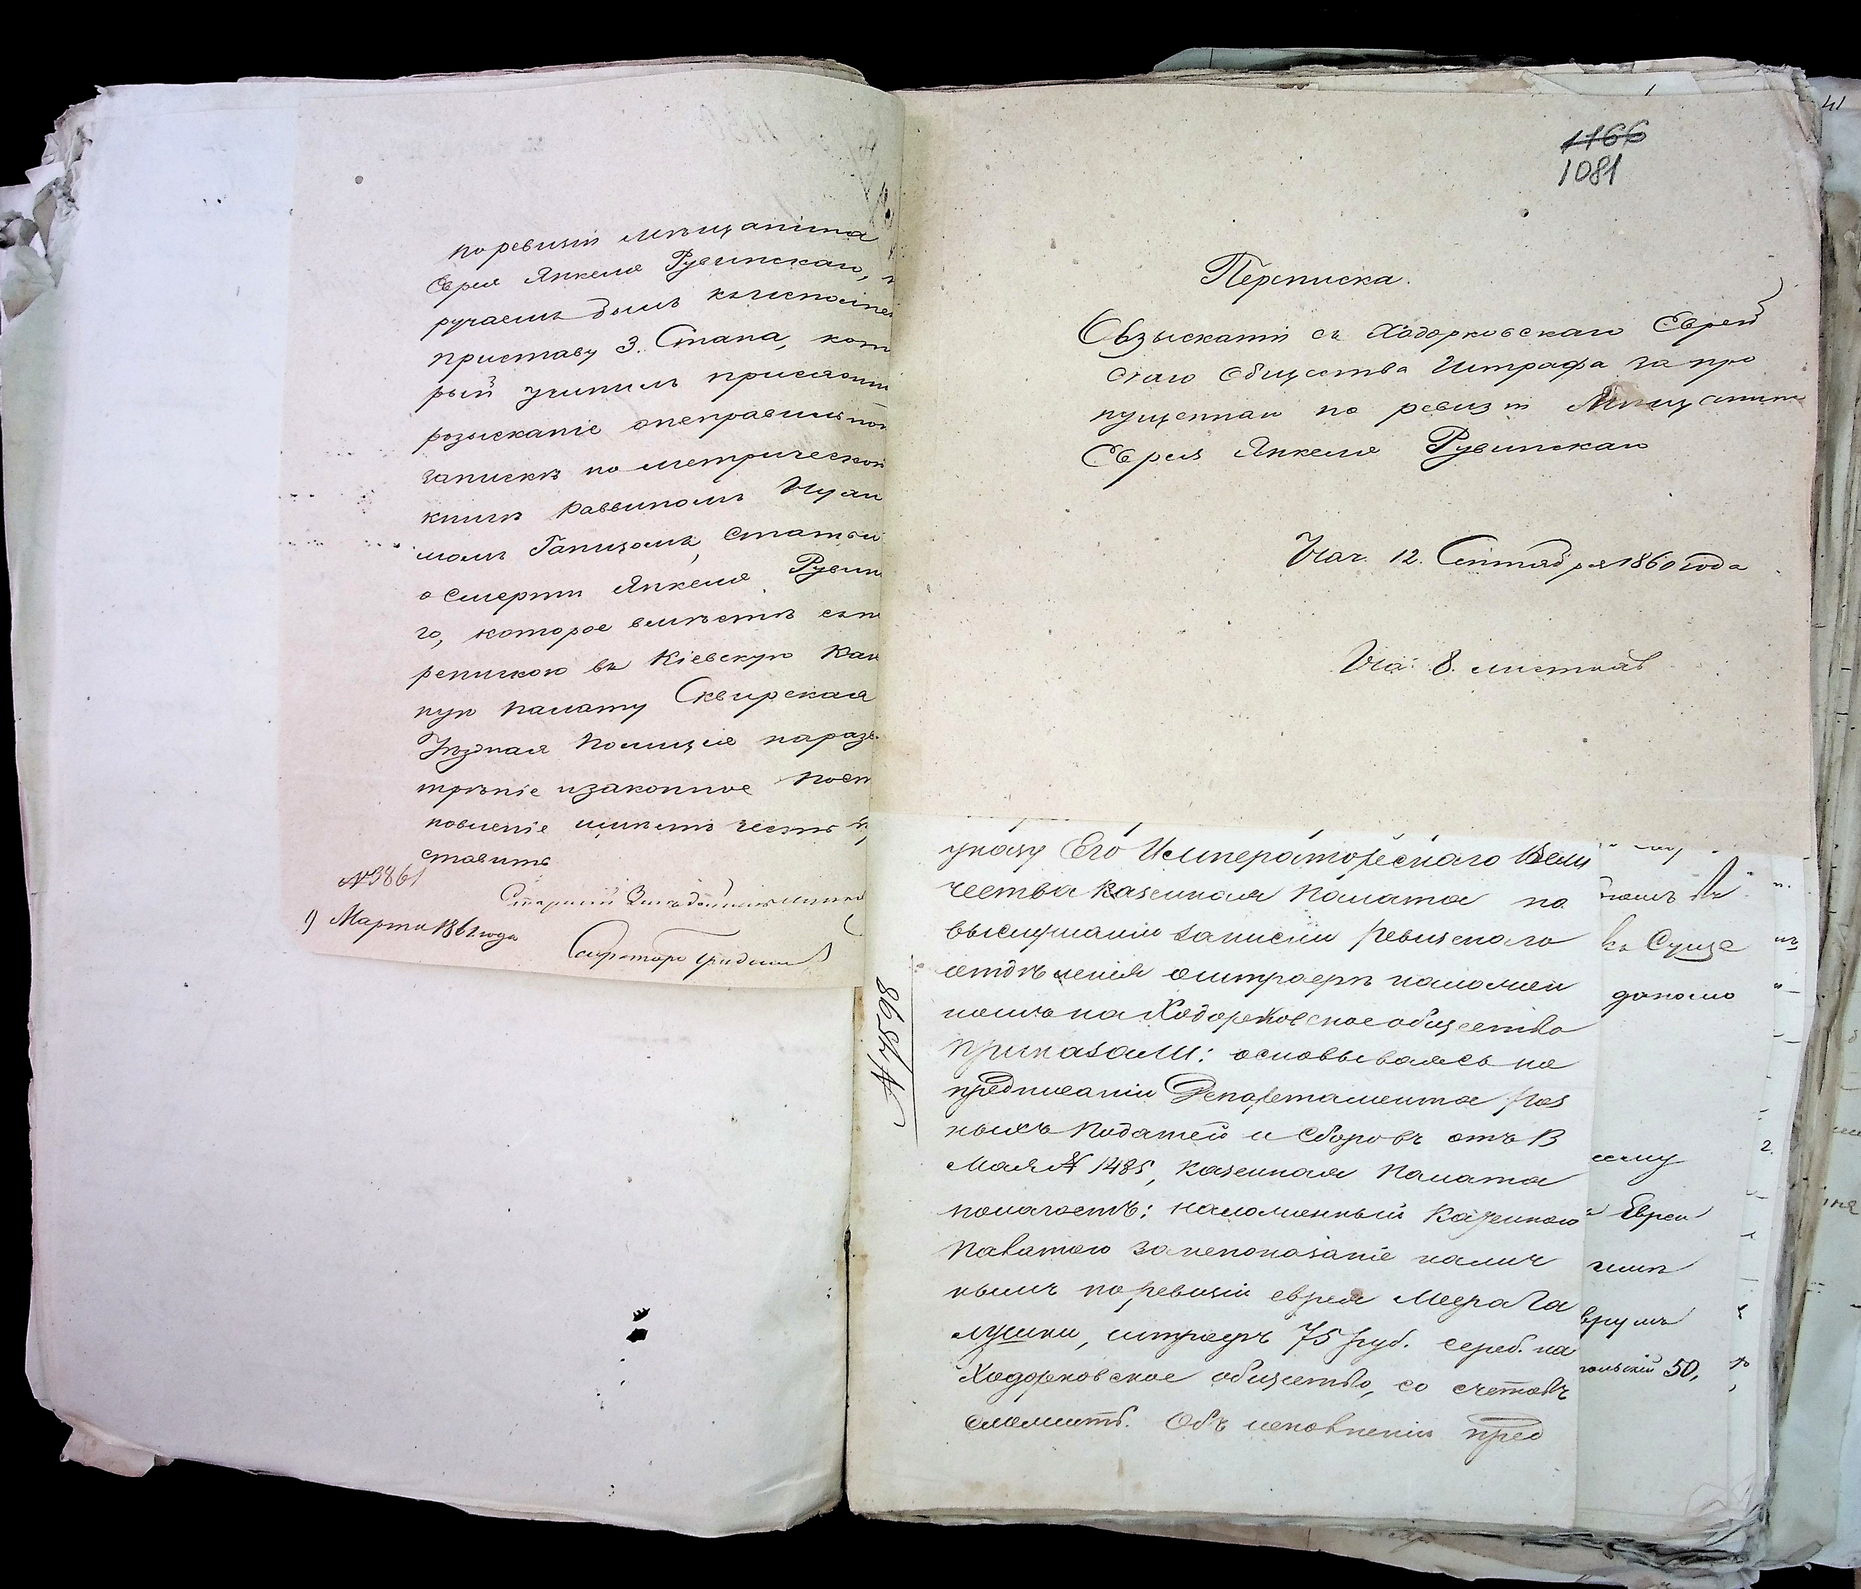 по ревизіи мѣщанина
Еврея Янкеля Рувинскаго,
ручаемъ былъ къ исполне
приставу 3. Стана, кото
рый учинилъ присяжн
розысканіе о неправильной
запискѣ по метрической
книгѣ Раввиномъ
статьи
о смерти Янкеля Рувин
го, которое вмѣстѣ съ пе
репискою въ Кіевскую Каз
ную палату Сквирская
Уѣздная Полиція на разс
трѣніе и законное пост
новленіе имѣетъ честь п
ставить
№ 3861
Марта 1861 года
Секретарь
1166
1081
Переписка.
О взысканіи съ Ходорковскаго Еврей
скаго общества Штрафа за про
пущеннаго по ревизіи Мѣщанина
Еврея Янкеля Рувинскаго
Нач. 12. Сентября 1860 года
На 8. листахъ
указу Его Императорскаго Вели
чества Казенная Палата по
выслушаніи записки ревизскаго
отдѣленія о штрафѣ наложен
номъ на Ходорковское общество
приказали: основываясь на
предписаніи Департамента Раз
ныхъ Податей и Сборовъ отъ 13
Мая № 1485, Казенная Палата
полагаетъ: наложенный Казенною
Палатою за непоказаніе налич
нымъ по ревизіи еврея Меера Га
лушки, штрафъ 75 руб. сереб. на
Ходорковское общество, со счетовъ
сложить. Объ исполненіи пред
№ 7598
Еврея
50,
2.
41